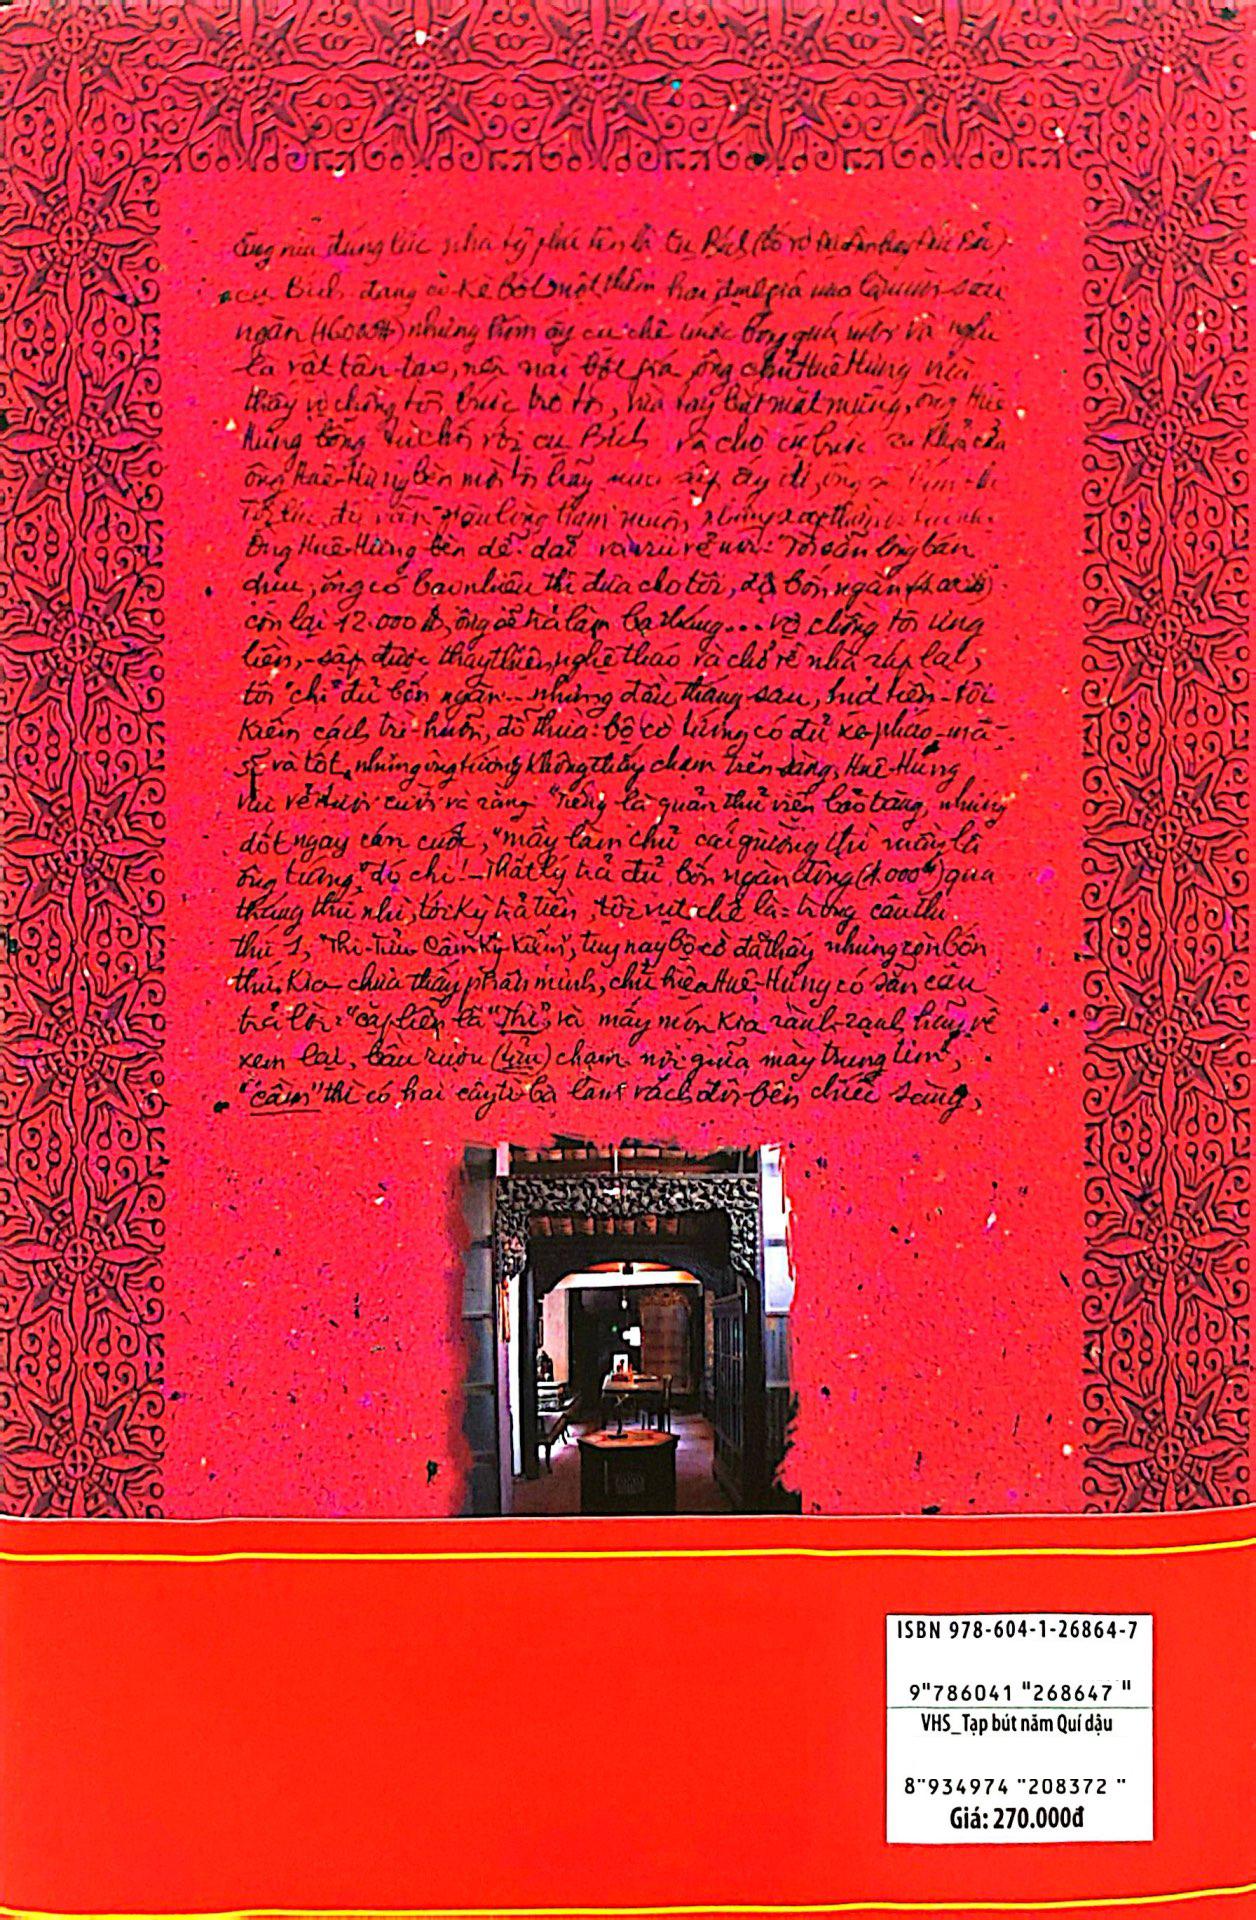 cũng vừa đúng lúc nhà tỷ phú tên là Cụ Bích
cụ Bích đang cò-kè bớt một thêm hai, định giá mười sáu
ngàn nhưng hôm ấy cụ chê nước bóng quá mới và nghi
là vật tân-tạo, nên nài bớt giá, ông chủ Huê-Hưng vừa
thấy vợ chồng tôi bước vô tới, vừa tay bắt mặt mừng, ông Huê
Hưng bỗng từ chối với cụ Bích và chờ cụ bước ra khỏi cửa
ông Huê-Hưng bèn mời tôi hãy mua sập ấy đi,
Ông Huê-Hưng bèn dễ-dãi và vui vẻ nói: "Tôi sẵn lòng bán
chịu, ông có bao nhiêu thì đưa cho tôi, độ bốn ngàn
còn lại 12.000$, ông sẽ trả làm ba tháng... vợ chồng tôi ưng
liền, - sập được tháy thiện nghệ tháo và chở về nhà ráp lại,
tôi "chi" đủ bốn ngàn... nhưng đầu tháng sau, hụt tiền - tôi
kiếm cách trì-huỡn, đổ thừa: bộ cờ tướng có đủ xe-pháo-mã-
sĩ và tốt, nhưng ông tướng không thấy chạm trên sàng, Huê-Hưng
vui vẻ cười và rằng "Tiếng là quản thủ viện bảo tàng, nhưng
dốt ngay cán cuốc, "mầy làm chủ cái giường thì mầy là
ông tướng" đó chi! - Thất lý trả đủ bốn ngàn đồng (4.000$) qua
tháng thứ nhì, tới kỳ trả tiền, tôi vụt chê là: trong câu thi
thứ 1, "Thi-Tửu Cầm Kỳ Kiếm", tuy nay bộ cờ đã thấy nhưng còn bốn
thứ kia chưa thấy phân minh, chủ hiệu Huê-Hưng có sẵn câu
trả lời: "cặp liễn là "Thi", và mấy món kia rành-rạnh, hãy về
xem lại, bầu rượu (tửu) chạm nơi giữa mày trung tim,
"cầm" thì có hai cây tỳ-bà làm vách đôi bên chiếc sàng,
ISBN 978-604-1-26864-7
9"786041 "268647 "
VHS_Tạp bút năm Quí dậu
8"934974 "208372 "
Giá: 270.000đ